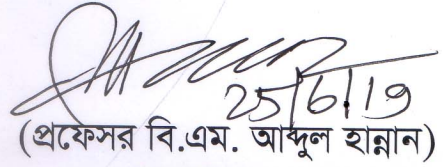 25/6/19
(প্রফেসর বি.এম. আব্দুল হান্নান)